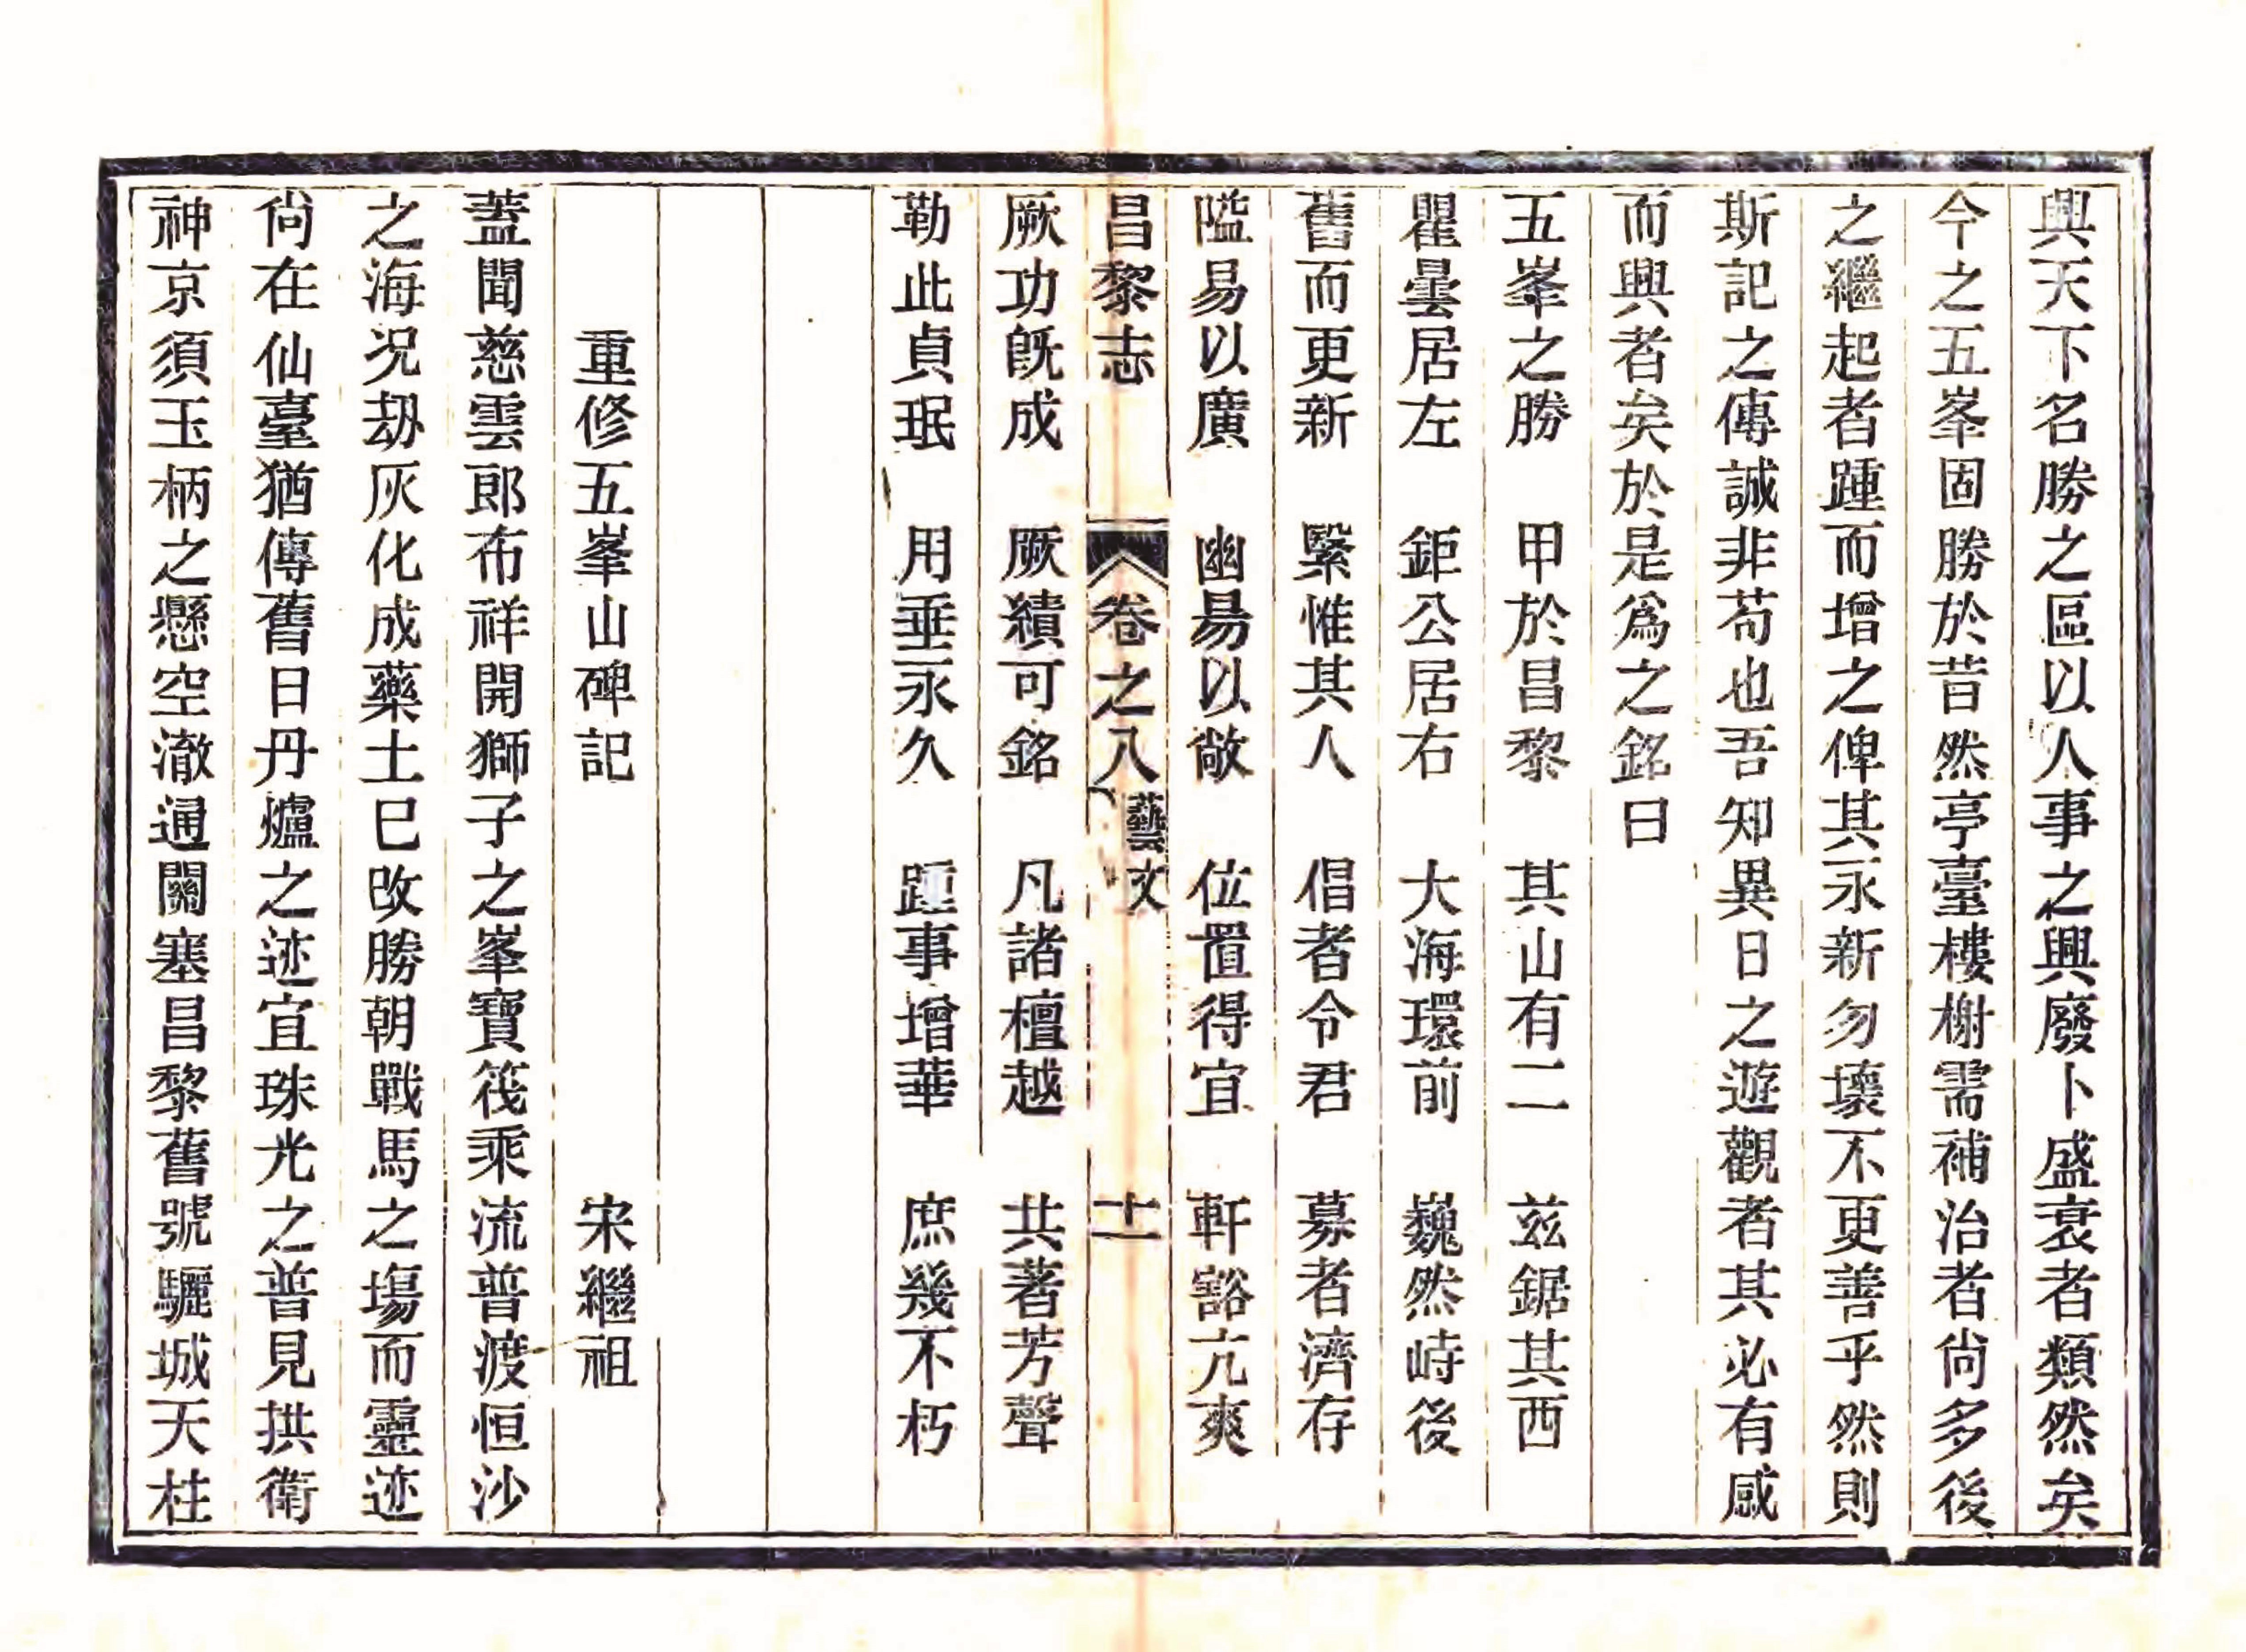 興天下名勝之區以人事之興廢卜盛衰者類然矣
今之五峯固勝於昔然亭臺樓榭需補治者尙多後
之繼起者踵而增之俾其永新勿壞不更善乎然則
斯記之傳誠非苟也吾知異日之遊觀者其必有感
而興者矣於是爲之銘曰
五峯之勝　甲於昌黎　其山有二　玆鋸其西
瞿曇居左　鉅公居右　大海環前　巍然峙後
舊而更新　繄惟其人　倡者令君　募者濟存
隘易以廣　幽易以敞　位置得宜　軒豁亢爽
昌黎志　卷之八　藝文　十一
厥功旣成　厥績可銘　凡諸檀越　共著芳聲
勒此貞珉　用垂永久　踵事增華　庶幾不朽
重修五峯山碑記　宋繼祖
蓋聞慈雲郎布祥開獅子之峯寶筏乘流普渡恒沙
之海況劫灰化成藥土已改勝朝戰馬之塲而靈迹
尙在仙臺猶傳舊日丹爐之迹宜珠光之普見拱衛
神京須玉柄之懸空澈通關塞昌黎舊號驪城天柱